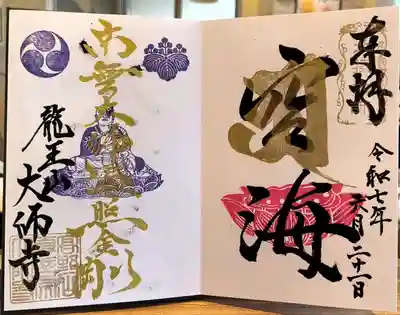 奉拝
令和七年
六月二十一日
空海
南無大師遍照金剛
龍王山
大師寺